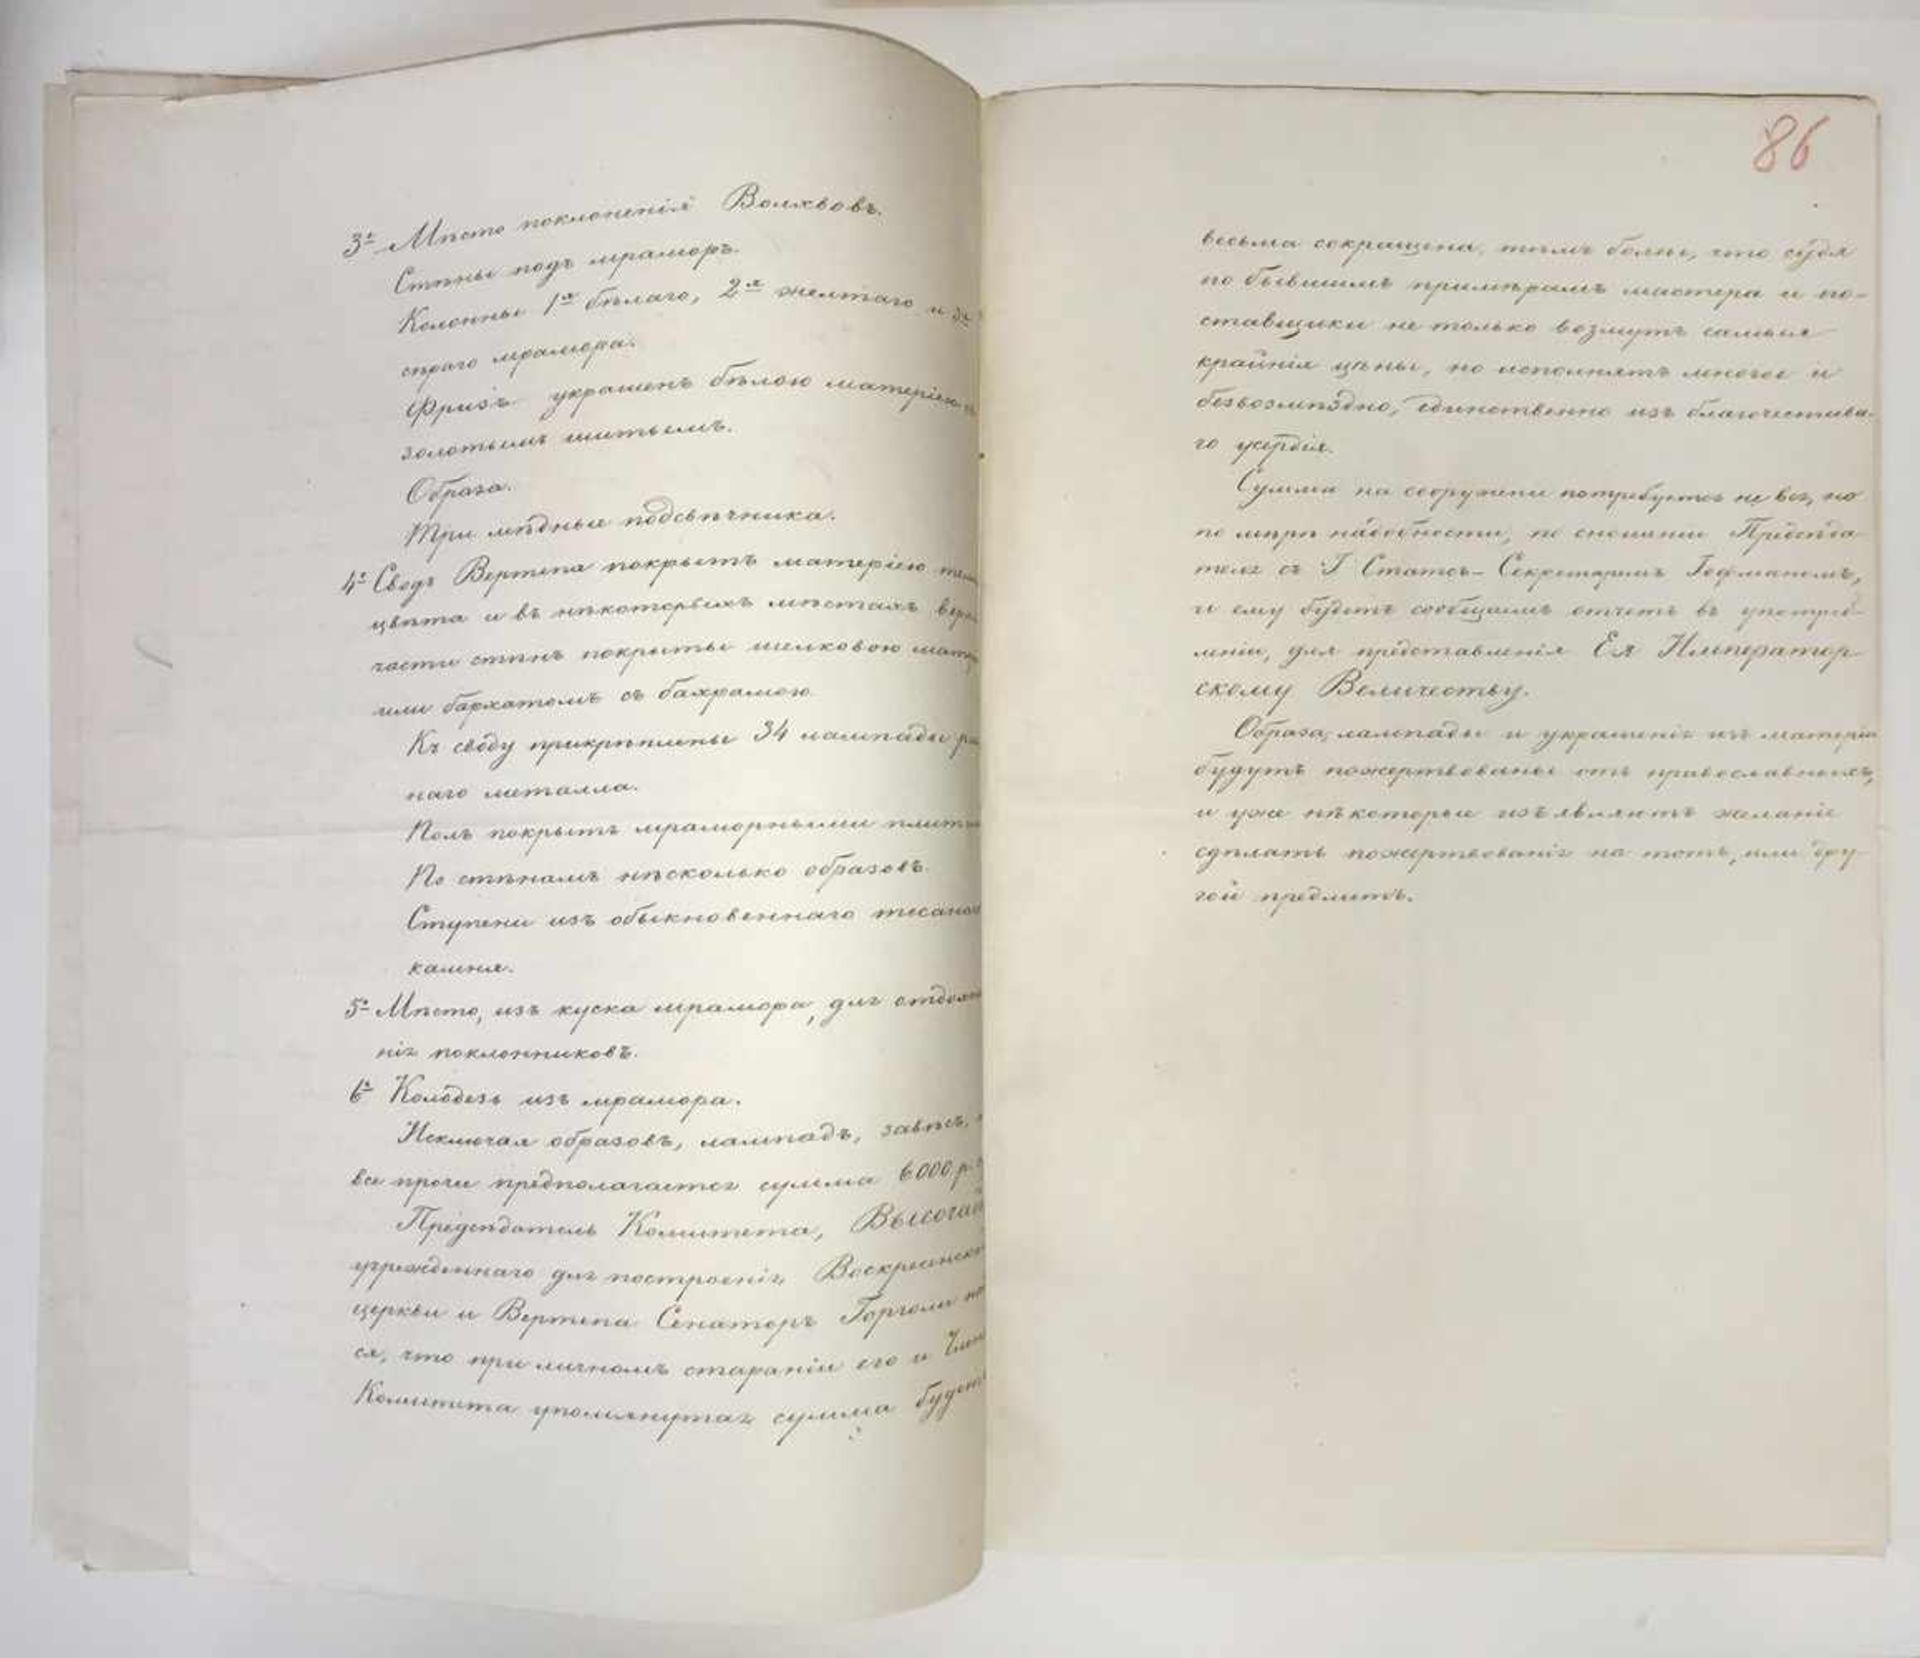 3е Мѣсто поклоненія Волхвовъ.
Стѣны подъ мраморъ.
Колонны 1я бѣлаго, 2я желтаго и 3я
сѣраго мрамора.
Фризъ украшенъ бѣлою матеріею
золотымъ шитьемъ.
Образа.
Три мѣдные подсвѣчника.
4е Сводъ Вертепа покрытъ матеріею
цвѣта и въ нѣкоторыхъ мѣстахъ
части стѣнъ покрыты шелковою
или бархатомъ съ бахрамою
Къ своду прикрѣплены 34 лампады
наго металла.
Полъ покрытъ мраморными
По стѣнамъ нѣсколько образовъ.
Ступени изъ обыкновеннаго
камня.
5е Мѣсто, изъ куска мрамора, для
нія поклонниковъ.
6е Колодезь изъ мрамора.
Исключая образовъ, лампадъ, завѣсъ,
все прочее предполагается сумма 6000 р.
Предсѣдатель Комитета,
учрежденнаго для построенія
церкви и Вертепа Сенаторъ Горголи
ся, что при личномъ стараніи его и
Комитета упомянутая сумма
86
весьма сокращена, тѣмъ болѣе, что судя
по бывшимъ примѣрамъ мастера и по-
ставщики не только возмутъ самыя
крайнія цѣны, но исполнятъ многое и
безвозмѣздно, единственно изъ благочестива-
го усердія.
Сумма на сооруженіе потребуется не вся, но
по мѣрѣ надобности, по сношеніи Предсѣда-
теля съ Г Статсъ-Секретаремъ Гофманомъ,
и ему будетъ сообщаемъ отчетъ въ употреб-
леніи, для представленія Ея Император-
скому Величеству.
Образа, лампады и украшенія изъ матеріи
будутъ пожертвованы отъ православныхъ,
и уже нѣкоторые изъявляютъ желаніе
сдѣлать пожертвованія на тотъ, или дру-
гой предметъ.